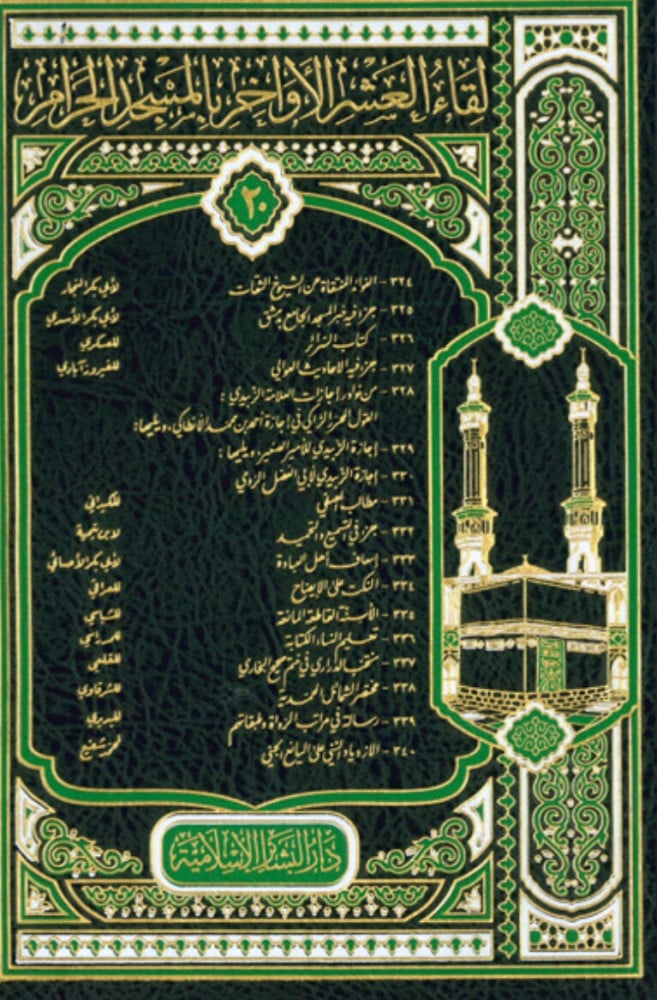 لقاء العشر الأواخر بالمسجد الحرام
٢٠
٣٢٤ - الفوائد المنتقاة عن الشيوخ الثقات لأبي بكر النجار
٣٢٥ - جزء فيه خبر المسجد الجامع بدمشق لأبي بكر الأسدي
٣٢٦ - كتاب السرائر للعسكري
٣٢٧ - جزء فيه الأحاديث العوالي للفيروزآبادي
٣٢٨ - من نوادر إجازات العلامة الزبيدي :
القول المحرر الزاكي في إجازة أحمد بن محمد الأنطاكي، ويليها :
٣٢٩ - إجازة الزبيدي للأمير الصغير، ويليها :
٣٣٠ - إجازة الزبيدي لأبي الفضل الرومي
٣٣١ - مطالب المصلي
٣٣٢ - جزء في التسميع والتحميد
٣٣٣ - إسعاف أهل العبادة لأبي بكر الأحسائي
٣٣٤ - النكت على الإيضاح
٣٣٥ - الأسنة القاطعة المانعة
٣٣٦ - تعليم النساء الكتابة
٣٣٧ - منتخب الدراري في ختم صحيح البخاري
٣٣٨ - مختصر الشمائل المحمدية للشرقاوي
٣٣٩ - رسالة في مراتب الرواة وطبقاتهم
٣٤٠ - الازدياد السني على اليانع الجني لمحمد شفيع
دار البشائر الإسلامية